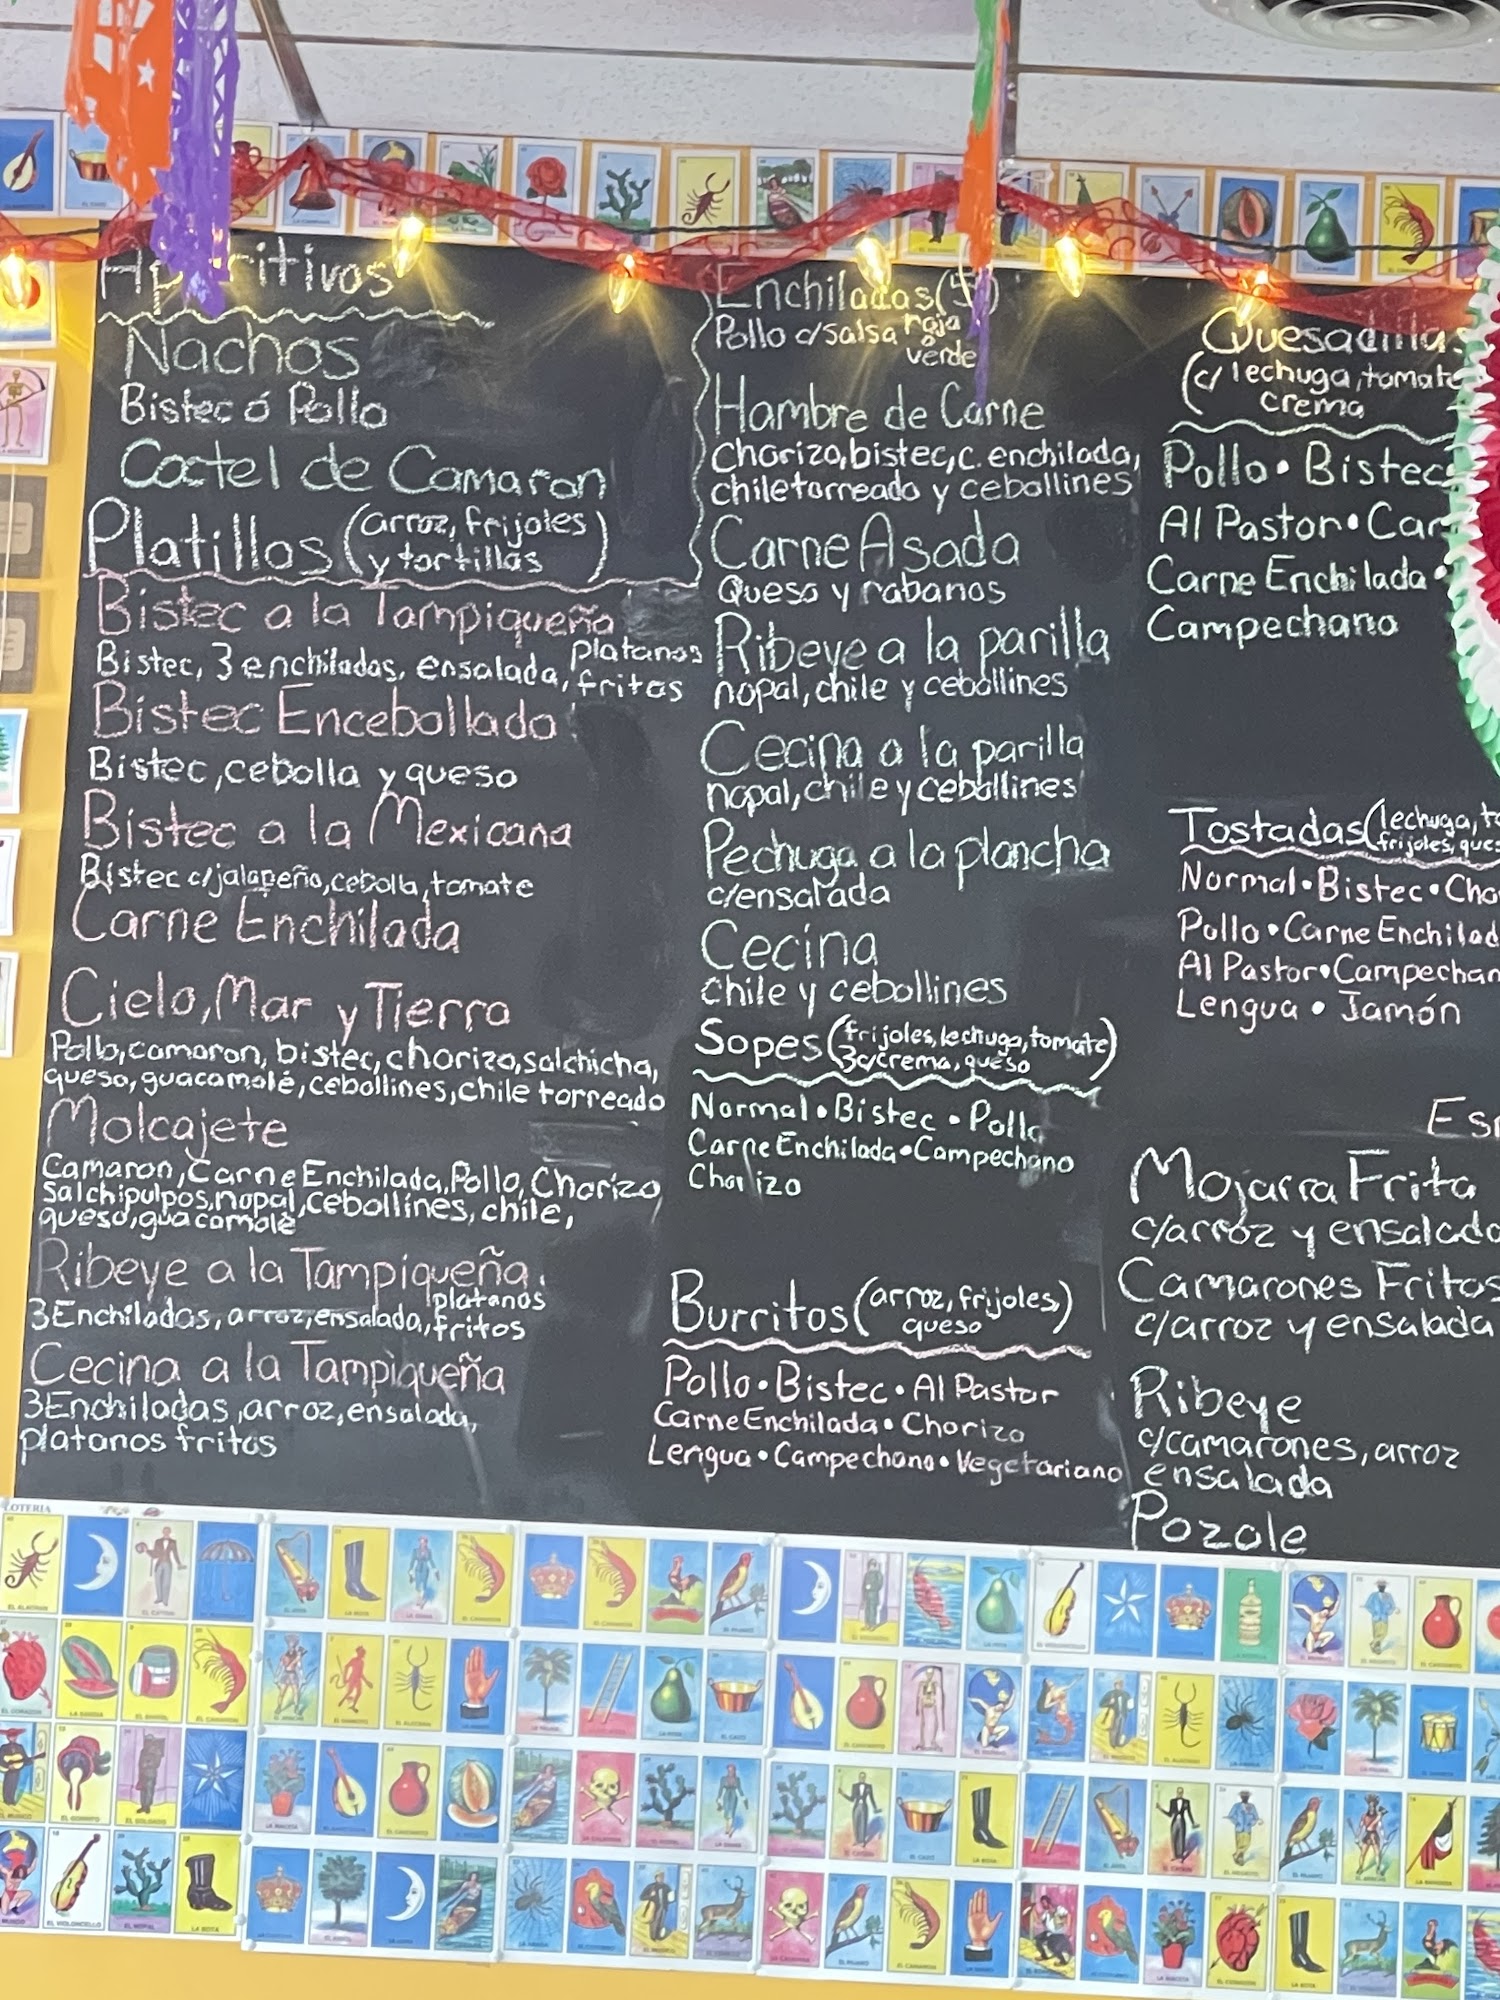 Aperitivos
Nachos
Bistec ó Pollo
Coctel de Camaron
Platillos (arroz, frijoles
y tortillas)
Bistec a la Tampiqueña
Bistec, 3 enchiladas, ensalada, platanos
fritos
Bistec Encebollado
Bistec, cebolla y queso
Bistec a la Mexicana
Bistec c/jalapeño, cebolla, tomate
Carne Enchilada
Cielo, Mar y Tierra
Pollo, camaron, bistec, chorizo, salchicha,
queso, guacamole, cebollines, chile torreado
Molcajete
Camaron, Carne Enchilada, Pollo, Chorizo
Salchipulpos, nopal, cebollines, chile,
queso, guacamole
Ribeye a la Tampiqueña.
3 Enchiladas, arroz, ensalada, platanos
fritos
Cecina a la Tampiqueña
3 Enchiladas, arroz, ensalada,
platanos fritos
Enchiladas (5)
Pollo c/salsa roja
o
verde
Hambre de Carne
Chorizo, bistec, c. enchilada,
chile torreado y cebollines
Carne Asada
Queso y rabanos
Ribeye a la parilla
nopal, chile y cebollines
Cecina a la parilla
nopal, chile y cebollines
Pechuga a la plancha
c/ensalada
Cecina
chile y cebollines
Sopes (frijoles, lechuga, tomate)
3 c/crema, queso
Normal • Bistec • Pollo
Carne Enchilada • Campechano
Chorizo
Burritos (arroz, frijoles,)
queso
Pollo • Bistec • Al Pastor
Carne Enchilada • Chorizo
Lengua • Campechano • Vegetariano
Quesadillas
(c/ lechuga, tomate
crema
Pollo • Bistec
Al Pastor • Car
Carne Enchilada •
Campechano
Tostadas (lechuga, to
frijoles, ques
Normal • Bistec • Cho
Pollo • Carne Enchilad
Al Pastor • Campechan
Lengua • Jamón
Es
Mojarra Frita
c/arroz y ensalada
Camarones Fritos
c/arroz y ensalada
Ribeye
c/camarones, arroz
ensalada
Pozole
LOTERIA